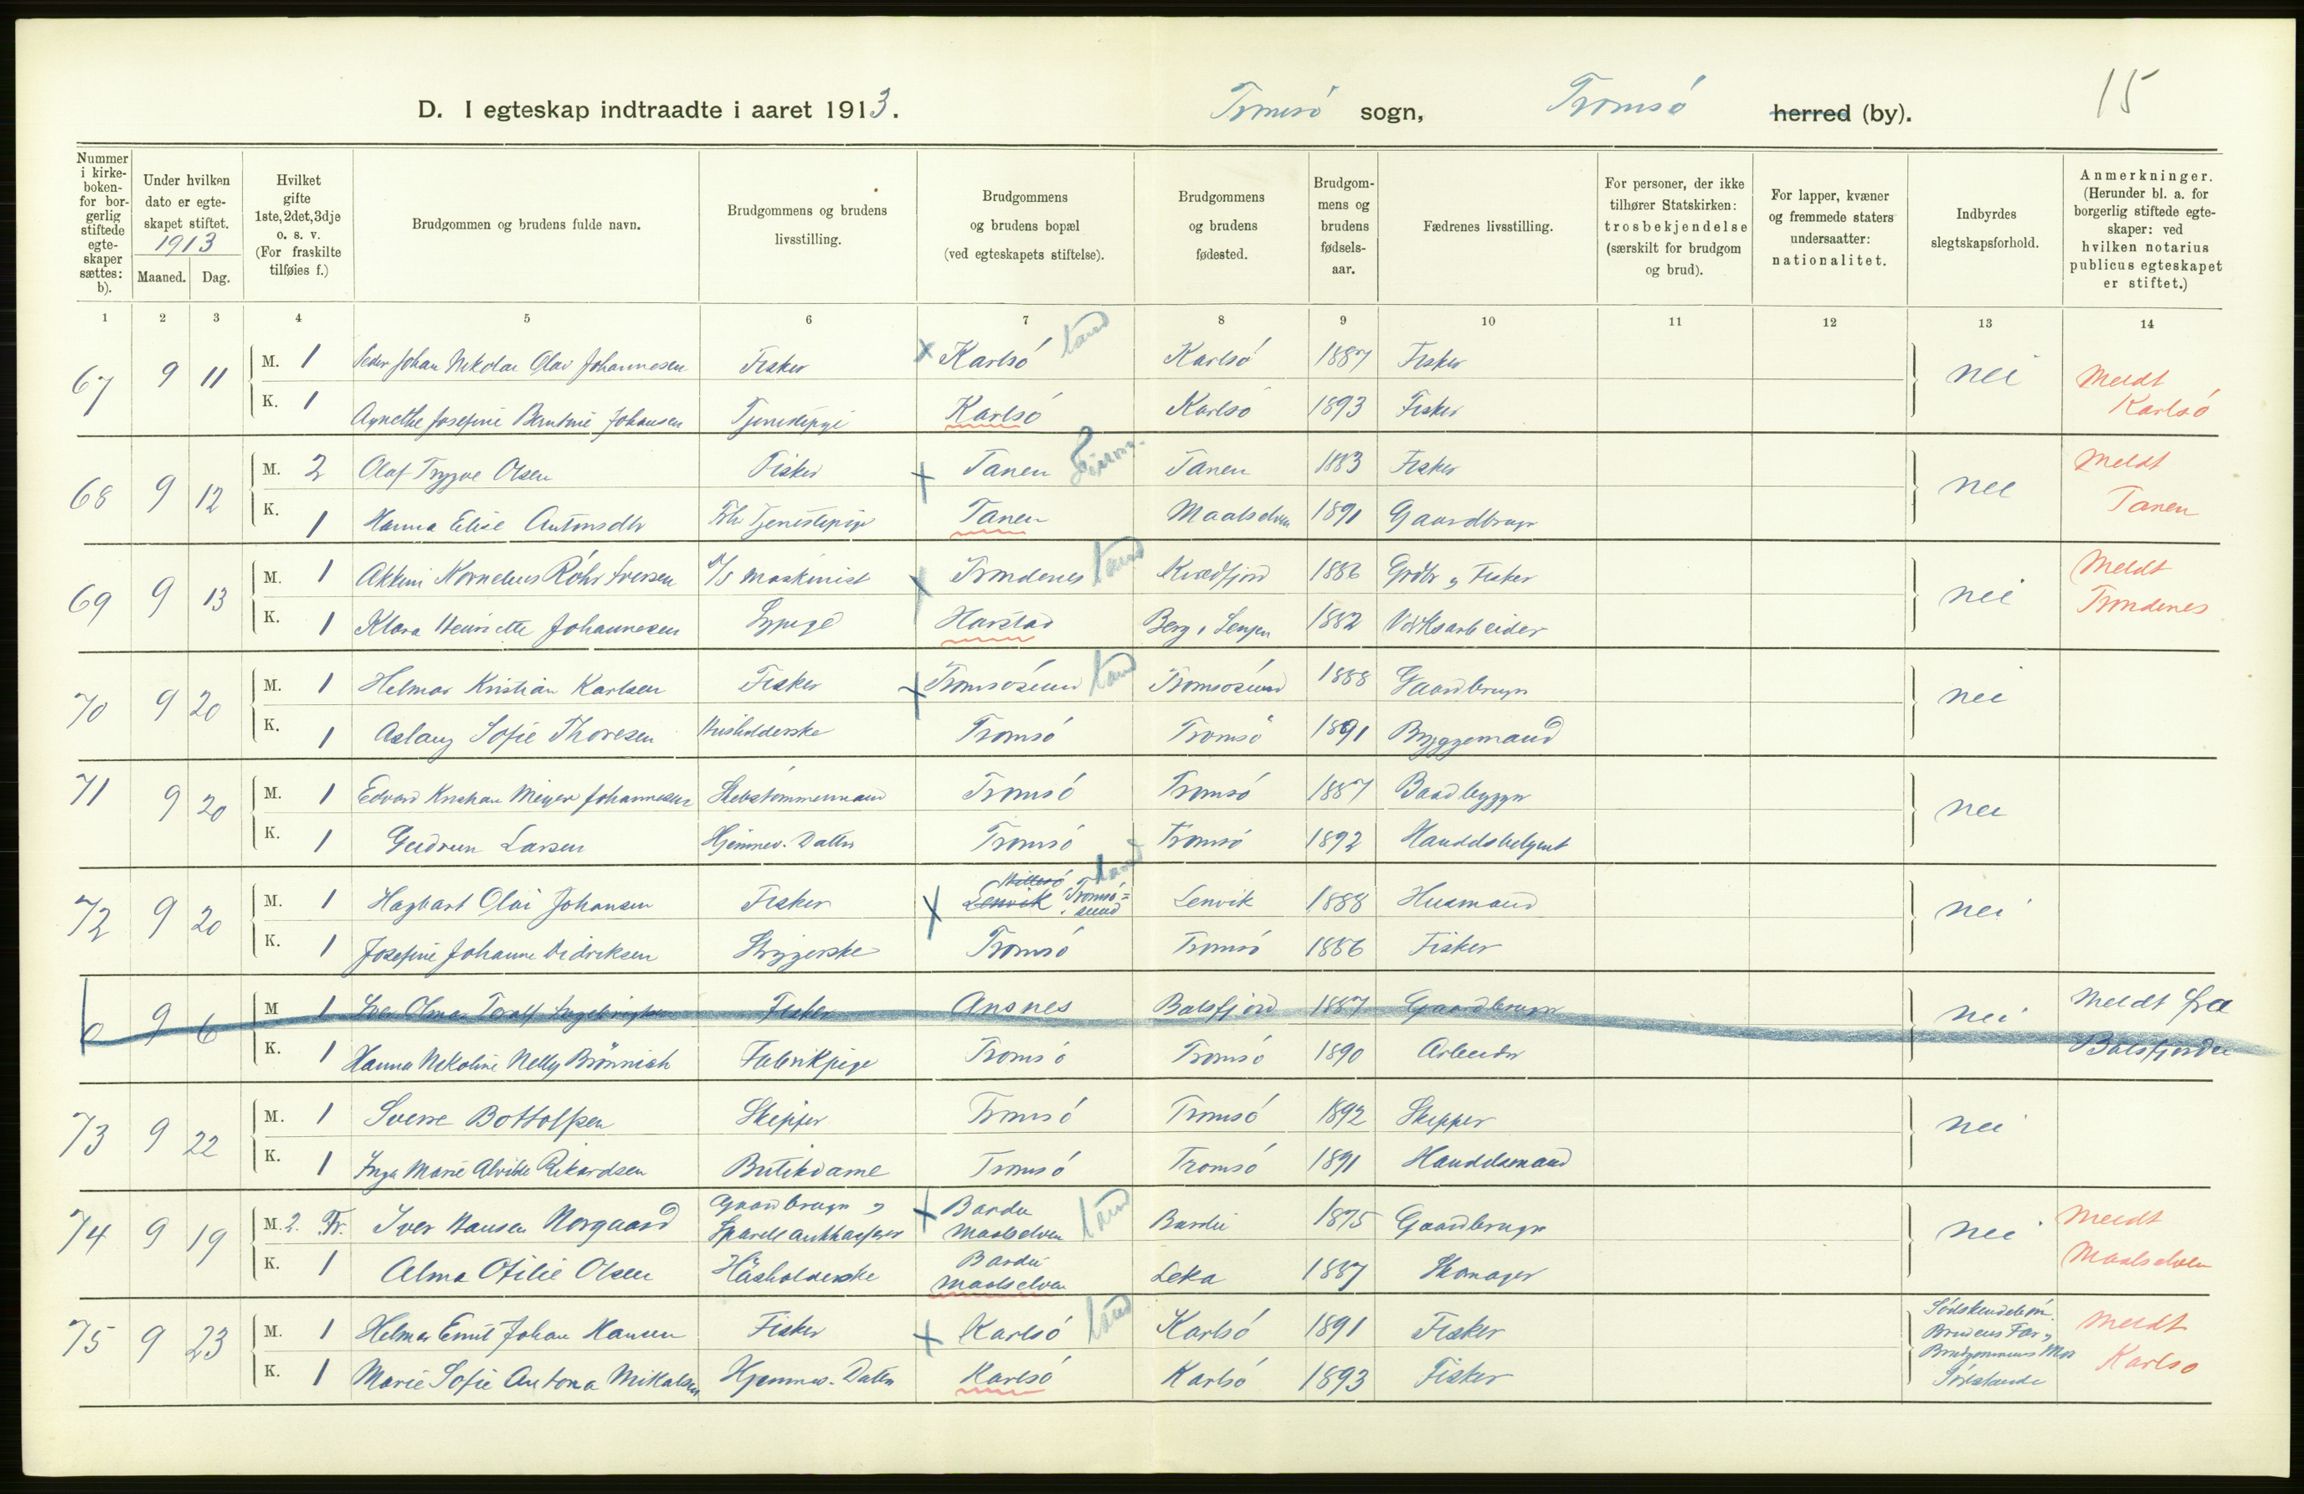 D. I egteskap indtraadte i aaret 1913. Tromsö sogn, Tromsö herred (by). 15
Nummer i kirkeboken for borgerlig stiftede egteskaper sættes: b).
Under hvilken dato er egteskapet stiftet. 1913
Maaned. Dag.
Hvilket gifte 1ste, 2det, 3dje o. s. v. (For fraskilte tilføies f.)
Brudgommen og brudens fulde navn.
Brudgommens og brudens livsstilling.
Brudgommens og brudens bopæl (ved egteskapets stiftelse).
Brudgommens og brudens fødested.
Brudgommens og brudens fødselsaar.
Fædrenes livsstilling.
For personer, der ikke tilhører Statskirken: trosbekjendelse (særskilt for brudgom og brud).
For lapper, kvæner og fremmede staters undersaatter: nationalitet.
Indbyrdes slegtskapsforhold.
Anmerkninger. (Herunder bl. a. for borgerlig stiftede egteskaper: ved hvilken notarius publicus egteskapet er stiftet.)
1 2 3 4 5 6 7 8 9 10 11 12 13 14
67 9 11 M. 1 Peder Johan Nikolai Olai Johannesen Fisker Karlsö land Karlsö 1887 Fisker nei Meldt Karlsö
K. 1 Agnethe Josefine Berntine Johansen Tjenestepige Karlsö Karlsö 1893 Fisker
68 9 12 M. 2 Olaf Trygve Olsen Fisker Tanen Tanen 1883 Fisker nei Meldt Tanen
K. 1 Hanna Elise Antonsdtr Frh Tjenestepige Tanen Maalselven 1891 Gaardbruger
69 9 13 M. 1 Akkim Kornelius Röhr Iversen D/S maskinist Trondenes land Kvædfjord 1886 Grdbr og Fisker nei Meldt Trondenes
K. 1 Klara Henriette Johannesen Sypige Harstad Berg i Senjen 1882 Verksarbeider
70 9 20 M. 1 Helmar Kristian Karlsen Fisker Tromsösund land Tromsösund 1888 Gaardbruger nei
K. 1 Aslaug Sofie Thoresen Husholderske Tromsö Tromsö 1891 Bryggemand
71 9 20 M. 1 Edvard Kristian Meyer Johannesen Skibstömmermand Tromsö Tromsö 1887 Baadbygger nei
K. 1 Gudrun Larsen Hjemmev. Datter Tromsö Tromsö 1892 Handelsbetjent
72 9 20 M. 1 Hagbart Olai Johansen Fisker Lenvik Tromsösund land Lenvik 1888 Husmand nei
K. 1 Josefine Johanne Didriksen Strygerske Tromsö Tromsö 1886 Fisker
b 9 6 M 1 Iver Olmar Toralf Ingebrigtsen Fisker Ansnes Balsfjord 1887 Gaardbruger nei Meldt fra Balsfjorden
K. 1 Hanna Nikoline Nelly Brönnich Fabrikpige Tromsö Tromsö 1890 Arbeider
73 9 22 M. 1 Sverre Bottolfsen Skipper Tromsö Tromsö 1892 Skipper nei
K. 1 Inga Marie Alvilde Rikardsen Butikdame Tromsö Tromsö 1891 Handelsmand
74 9 19 M. 2. Fr. Iver Hansen Norgaard Gaardbruger og Bardu Maalselven land Bardu 1875 Gaardbruger nei Meldt Maalselven
K. 1 Alma Otilie Olsen Husholderske Bardu Maalselven Leka 1887 Skomager
75 9 23 M. 1 Helmer Emil Johan Hansen Fisker Karlsö land Karlsö 1891 Fisker Södskendebörn. Brudens Far og Brudgommens Mor Södskende Meldt Karlsö
K. 1 Marie Sofie Antona Mikalsen Hjemmev. Datter Karlsö Karlsö 1893 Fisker